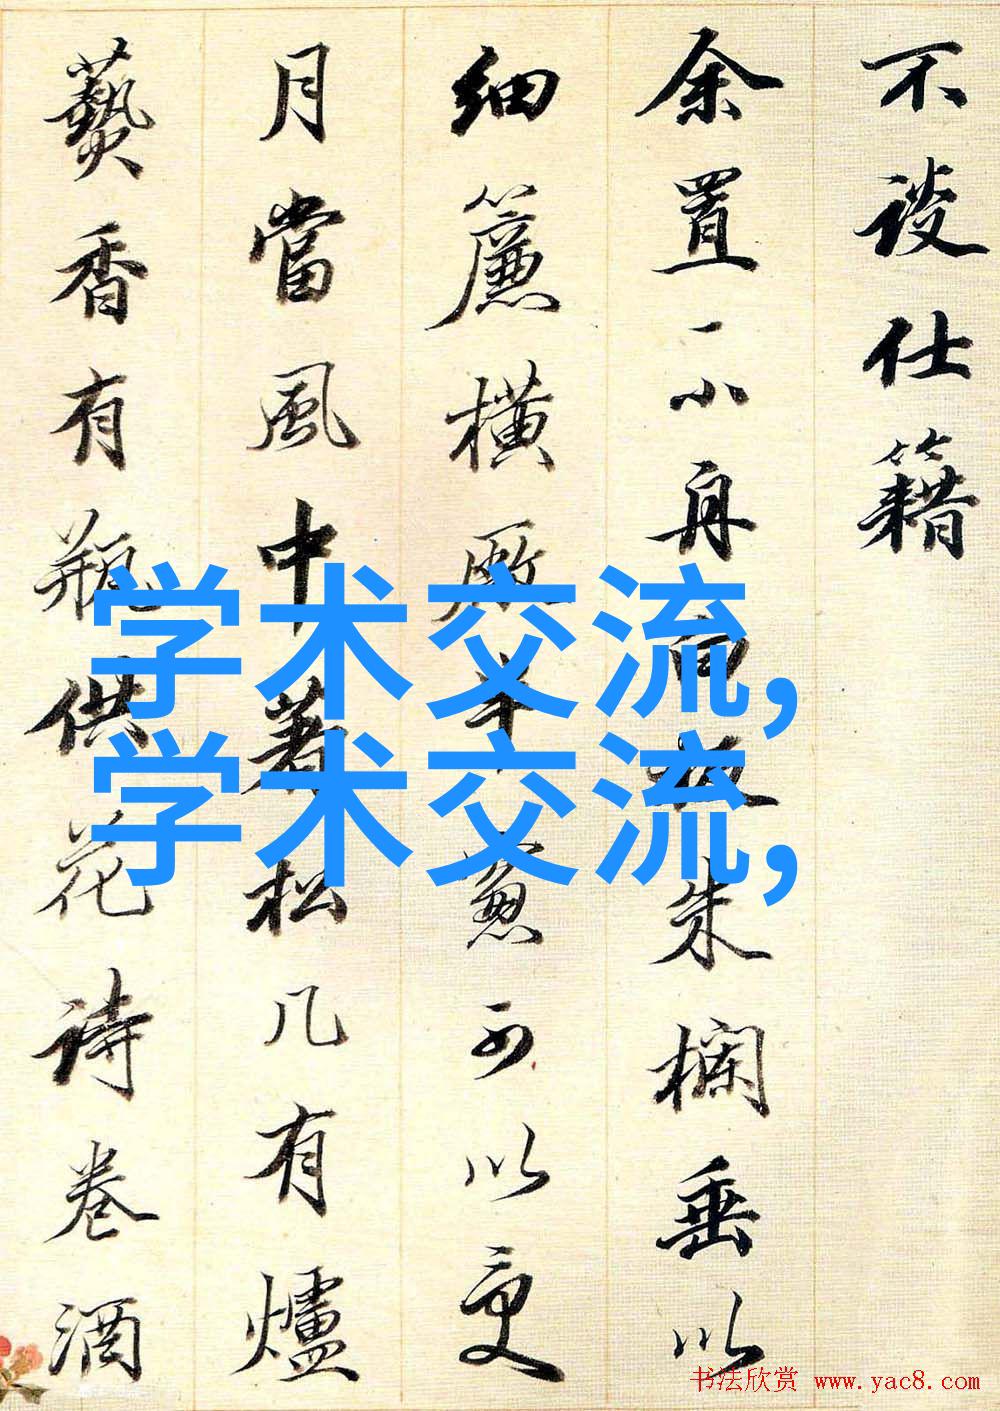 不談仕籍
余置一小舟白板朱欄垂以
細簾橫廠半窻可以受
月當風中著松几有爐
爇香有瓶供花詩卷酒
学术交流,
学术交流,
书法欣赏 www.yac8.com